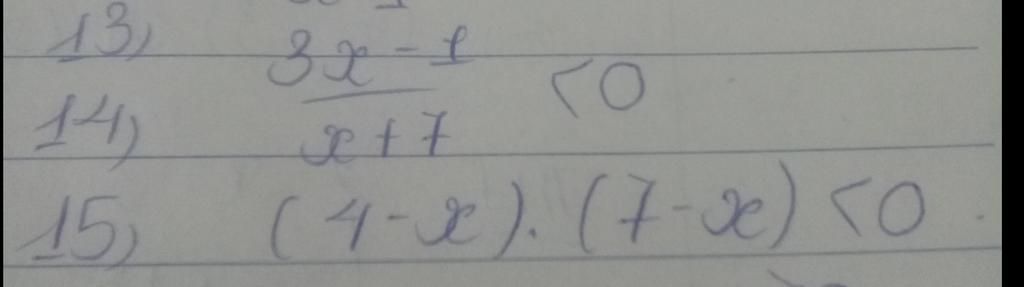 13)
3x-1
14) <0
x+7
15) (4-x).(7-x)<0.